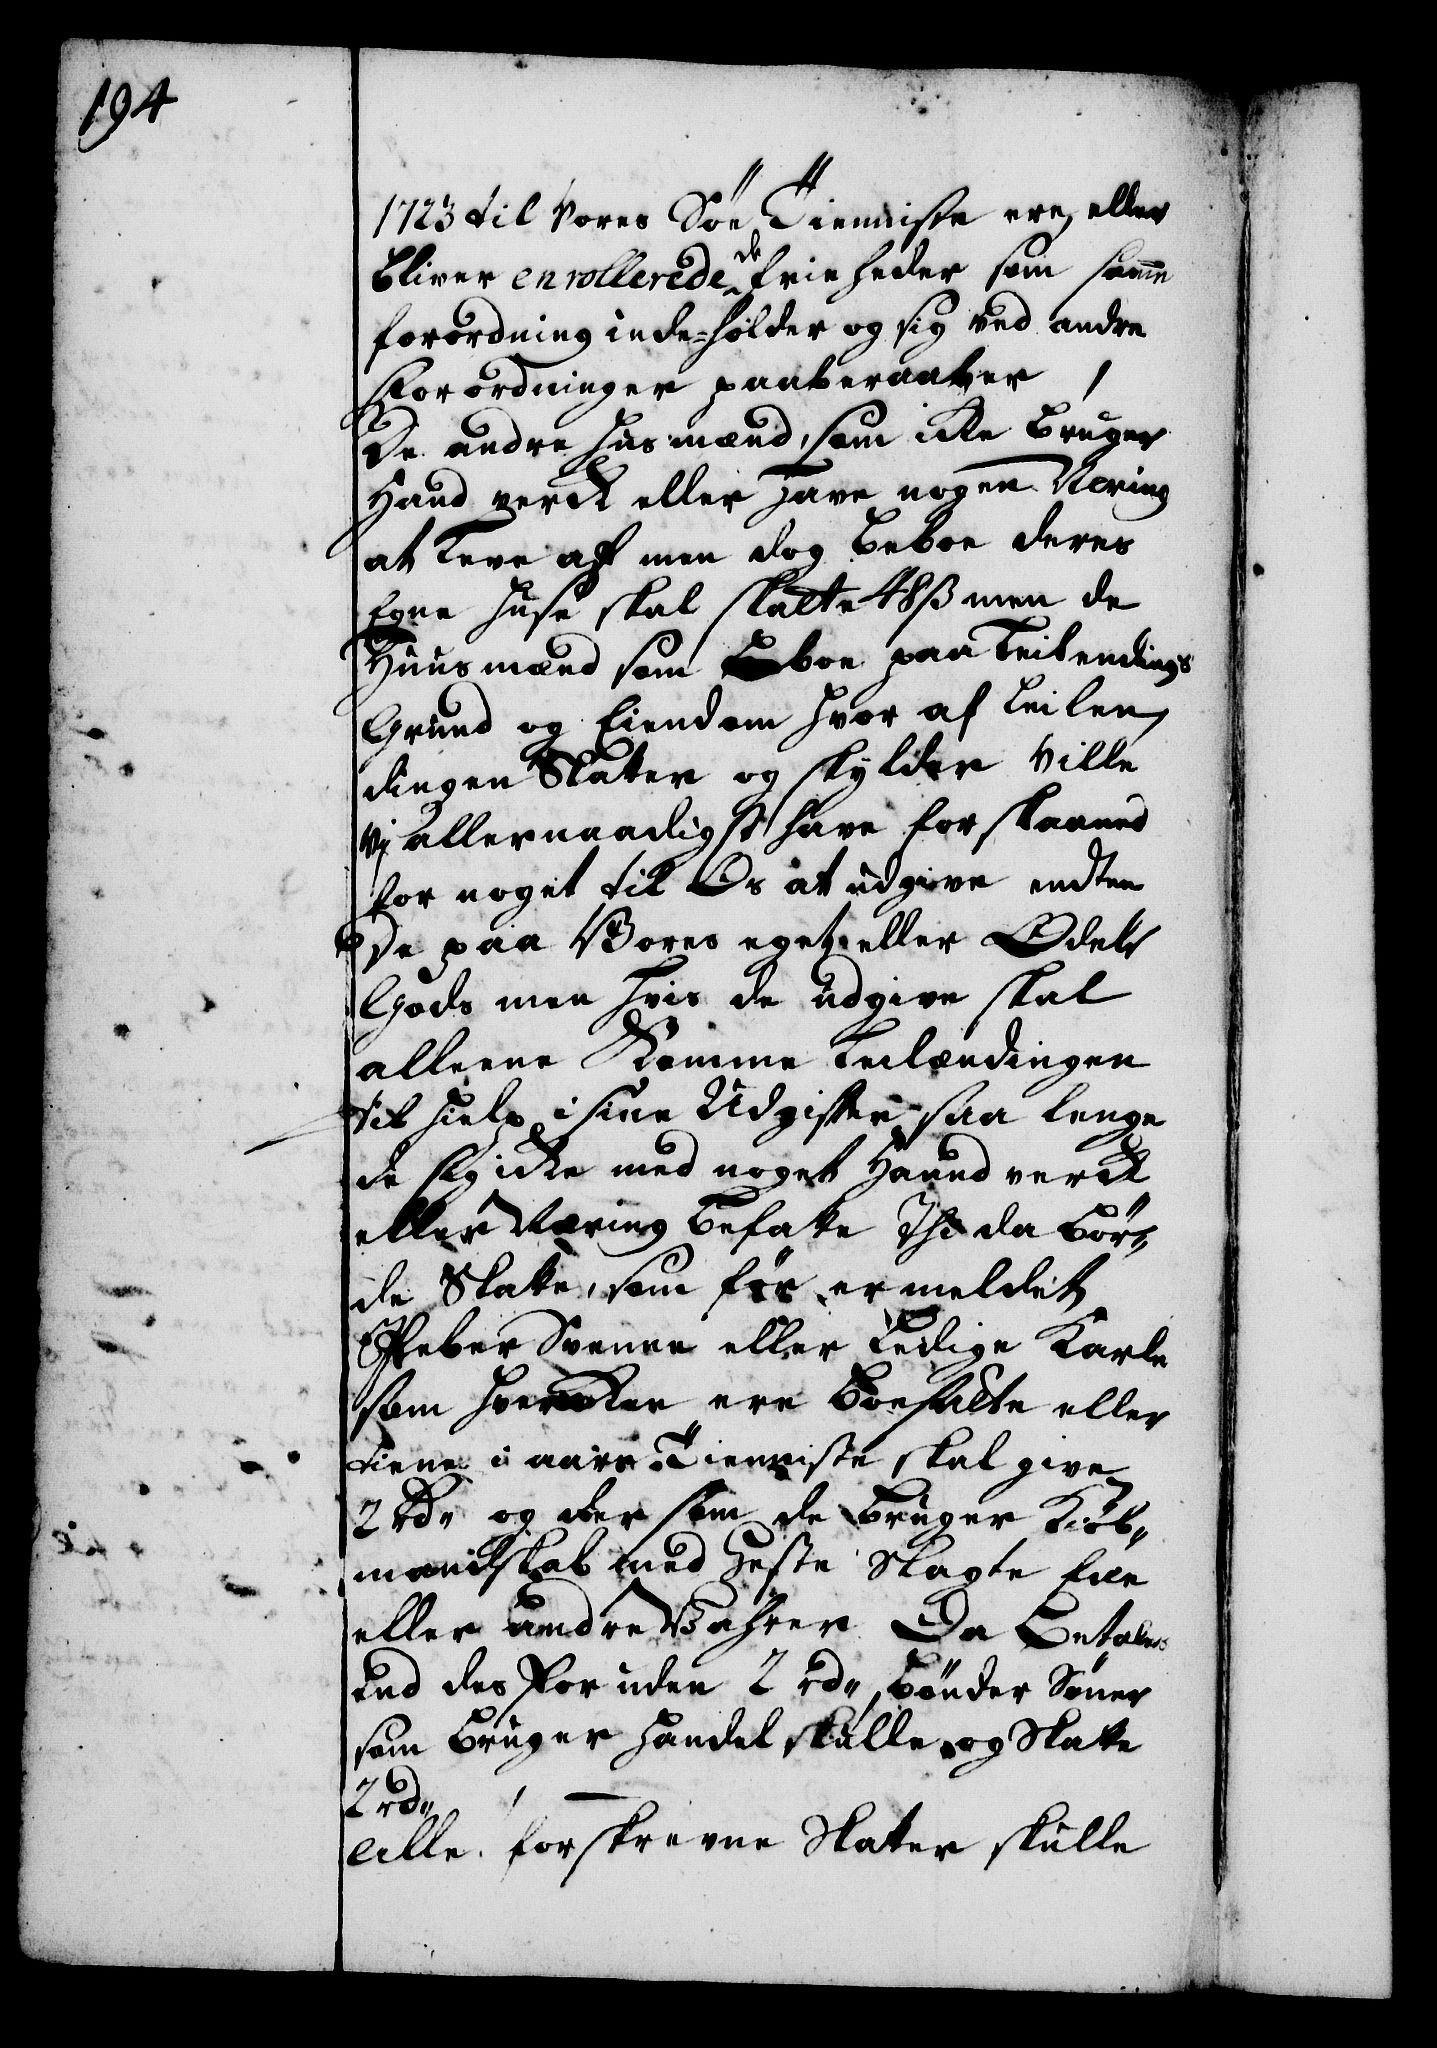 194
1723 til Vores Söe Tienniste ere, eller
bliver enrollerede de frieheder som samme
forordning inde=holder og sig ved andre
forordninger paaberaaber /
De andre husmænd, som icke bruger
Haand verck eller have nogen Næring
at leve af men dog beboe deres
Egne huse skal skatte 48 ß men de
Huusmænd som Eboe paa Leilendings
Grund og Eiendom hvor af Leilen,
dingen Skatter og skylder Ville
Vj allernaadigst have forskaaned
for noget til Os at udgive endten
De paa Vores eget eller Odels
Gods men hvis de udgive skal
alleene Komme Leilændingen
til hielp i sine Udgifter saa lenge
de sig icke med noget Haand verck
eller Næring befatte Thi da bör
de Skatte, som för ermeldet
Peber Svenne eller Ledige Karle
som hvercken ere boesatte eller
tiene i aars Tienniste skal give
2 Rd. og der som de bruger Kiöb„
mandskab med Heste Slagte Fæe
eller andre Vahrer Da betales
end des foruden 2 rd. bönder Sönner
som bruger handel skulle og Skatte
2 rd.
Alle forskrevne Skatter skulle